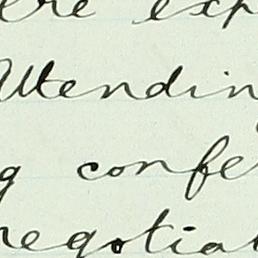 ere exp
Attendin
g confe
negotiat